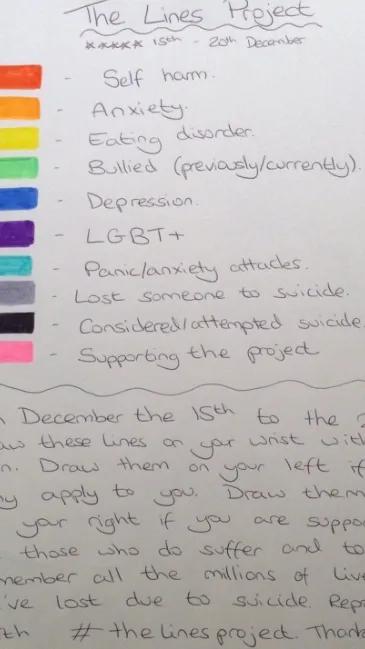 The Lines Project
***** 15th - 20th December
- Self harm.
- Anxiety.
- Eating disorder.
- Bullied (previously/currently).
- Depression.
- LGBT+
- Panic/anxiety attacks.
- Lost someone to suicide.
- Considered/attempted suicide.
- Supporting the project
December the 15th to the
these lines on your wrist
Draw them on your left
apply to you. Draw them
your right if you are
those who do suffer and to
all the millions of
lost due to suicide.
# thelinesproject.